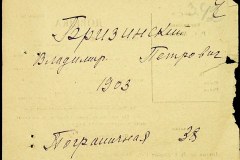 Бризинский
Владимир Петрович
1903
: Пограничная 38